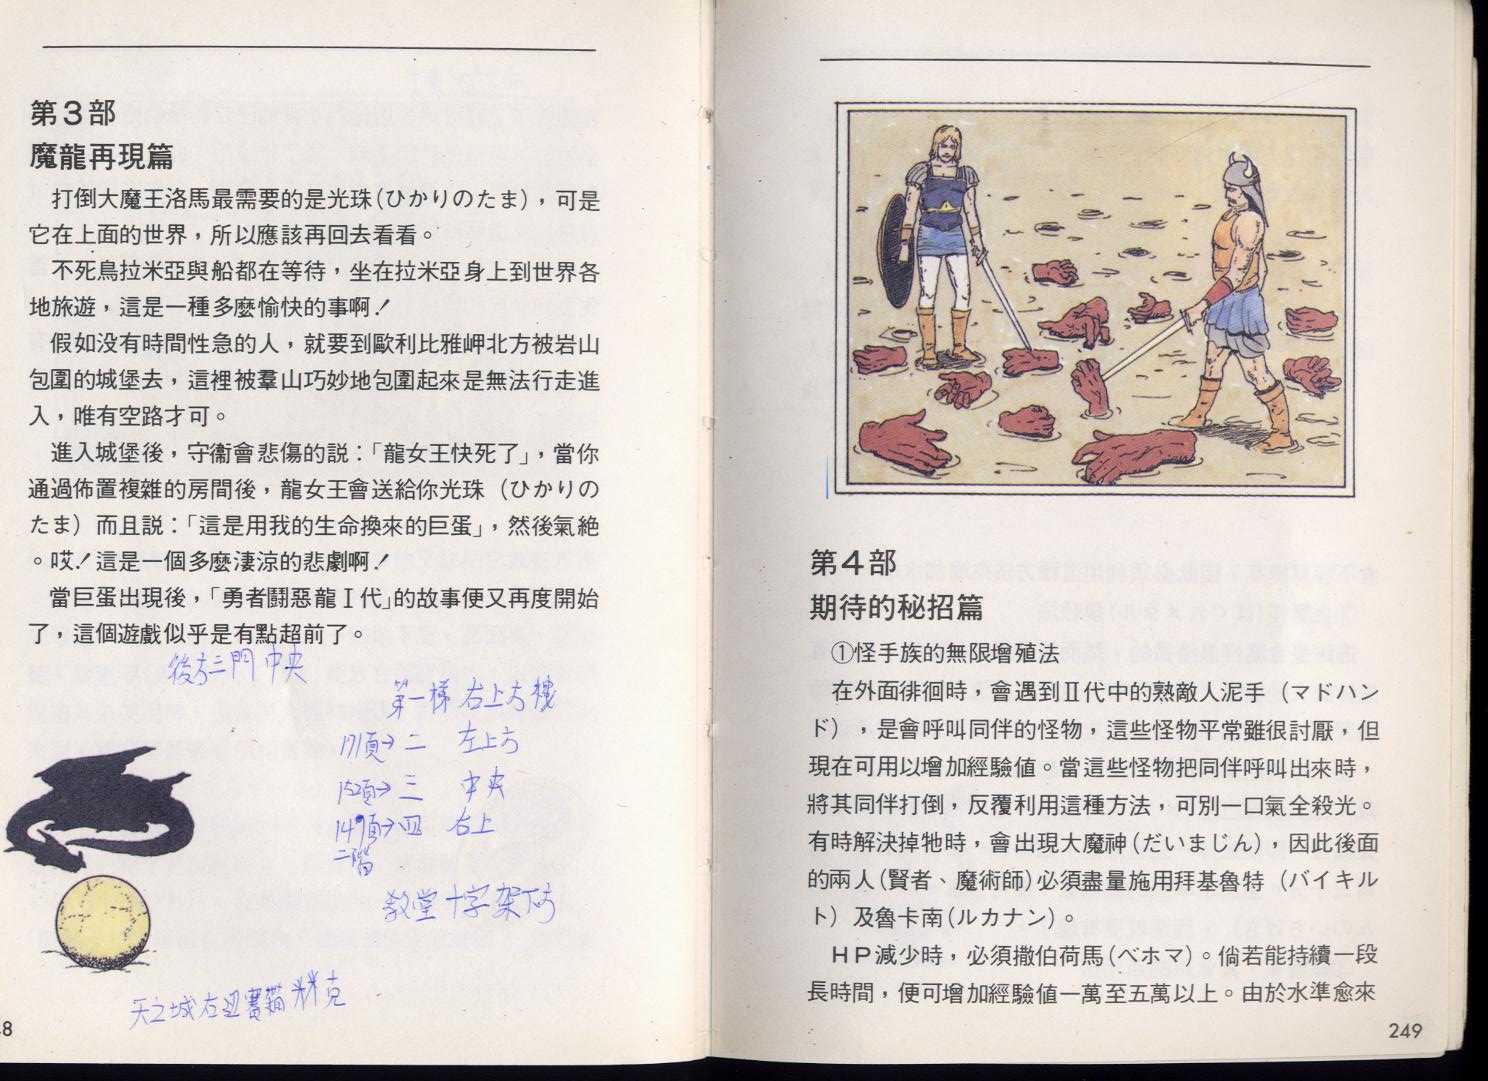 第3部
魔龍再現篇
打倒大魔王洛馬最需要的是光珠(ひかりのたま),可是
它在上面的世界,所以應該再回去看看。
不死鳥拉米亞與船都在等待,坐在拉米亞身上到世界各
地旅遊,這是一種多麼愉快的事啊!
假如没有時間性急的人,就要到歐利比雅岬北方被岩山
包圍的城堡去,這裡被羣山巧妙地包圍起來是無法行走進
入,唯有空路才可。
進入城堡後,守衞會悲傷的説:「龍女王快死了」,當你
通過佈置複雜的房間後,龍女王會送給你光珠(ひかりの
たま)而且説:「這是用我的生命換來的巨蛋」,然後氣絶
。哎!這是一個多麼淒涼的悲劇啊!
當巨蛋出現後,「勇者鬪惡龍Ⅰ代」的故事便又再度開始
了,這個遊戲似乎是有點超前了。
後右三門中央
第一梯 右上方樓
171頁→二 左上方
152頁→三 中央
149頁→四 右上
二階
教堂十字架下方
天之城右迴
48
249
第4部
期待的秘招篇
①怪手族的無限增殖法
在外面徘徊時,會遇到Ⅱ代中的熟敵人泥手(マドハン
ド),是會呼叫同伴的怪物,這些怪物平常雖很討厭,但
現在可用以增加經驗値。當這些怪物把同伴呼叫出來時,
將其同伴打倒,反覆利用這種方法,可別一口氣全殺光。
有時解決掉牠時,會出現大魔神(だいまじん),因此後面
的兩人(賢者、魔術師)必須盡量施用拜基魯特(バイキル
ト)及魯卡南(ルカナン)。
HP減少時,必須撒伯荷馬(ベホマ)。倘若能持續一段
長時間,便可增加經驗値一萬至五萬以上。由於水準愈來